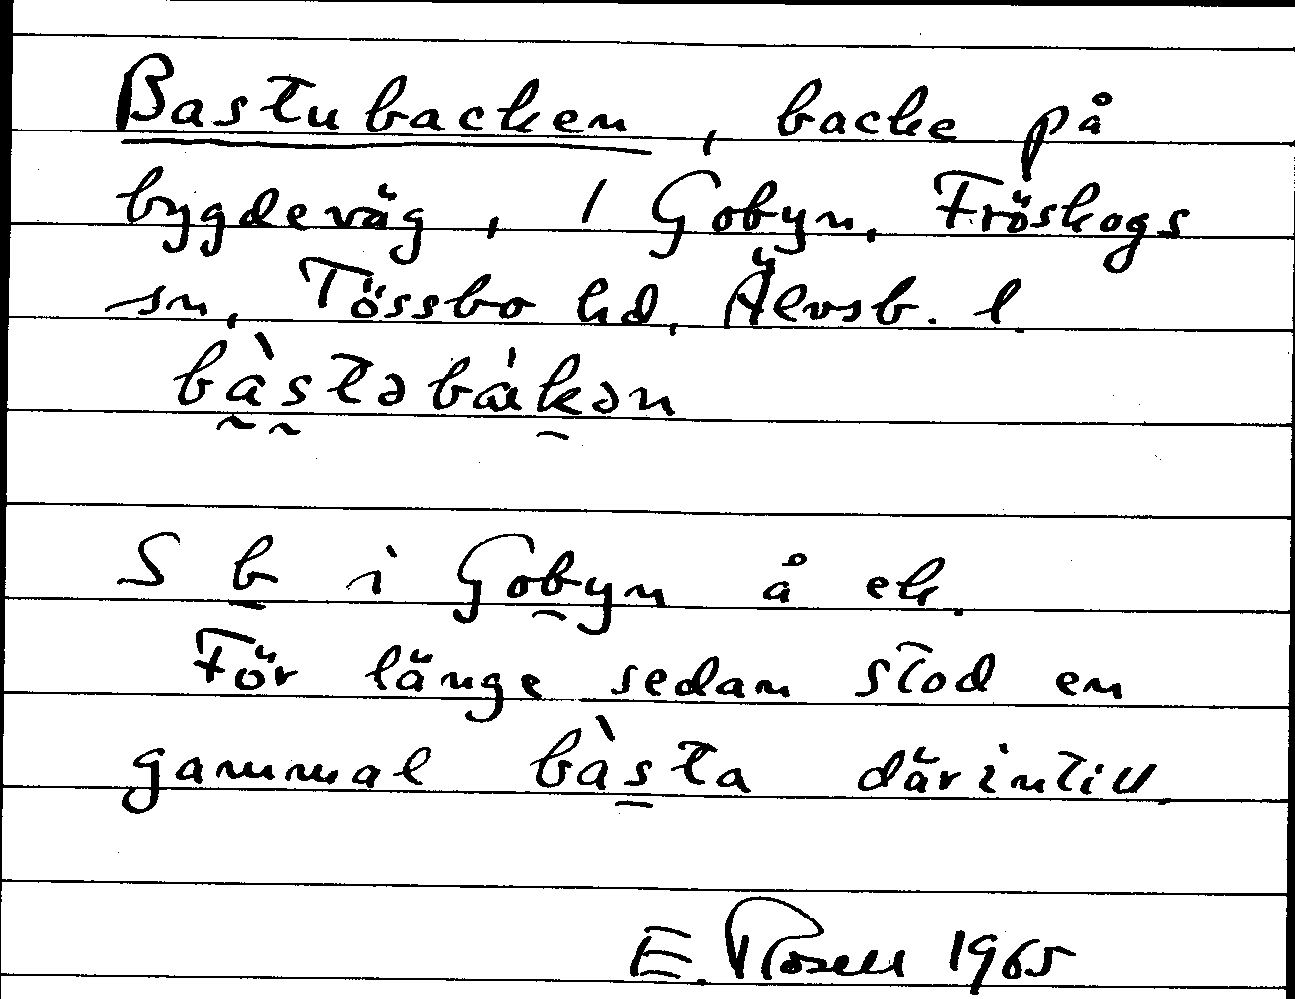 Bastubacken, backe på
bygdeväg, 1 Gobyn, Fröskogs
sn, Tössbo hd, Älvsb. l.
bàstəbákən
S b i Gobyn å ek.
För länge sedan stod en
gammal bàsta därintill.
E. Rosell 1965